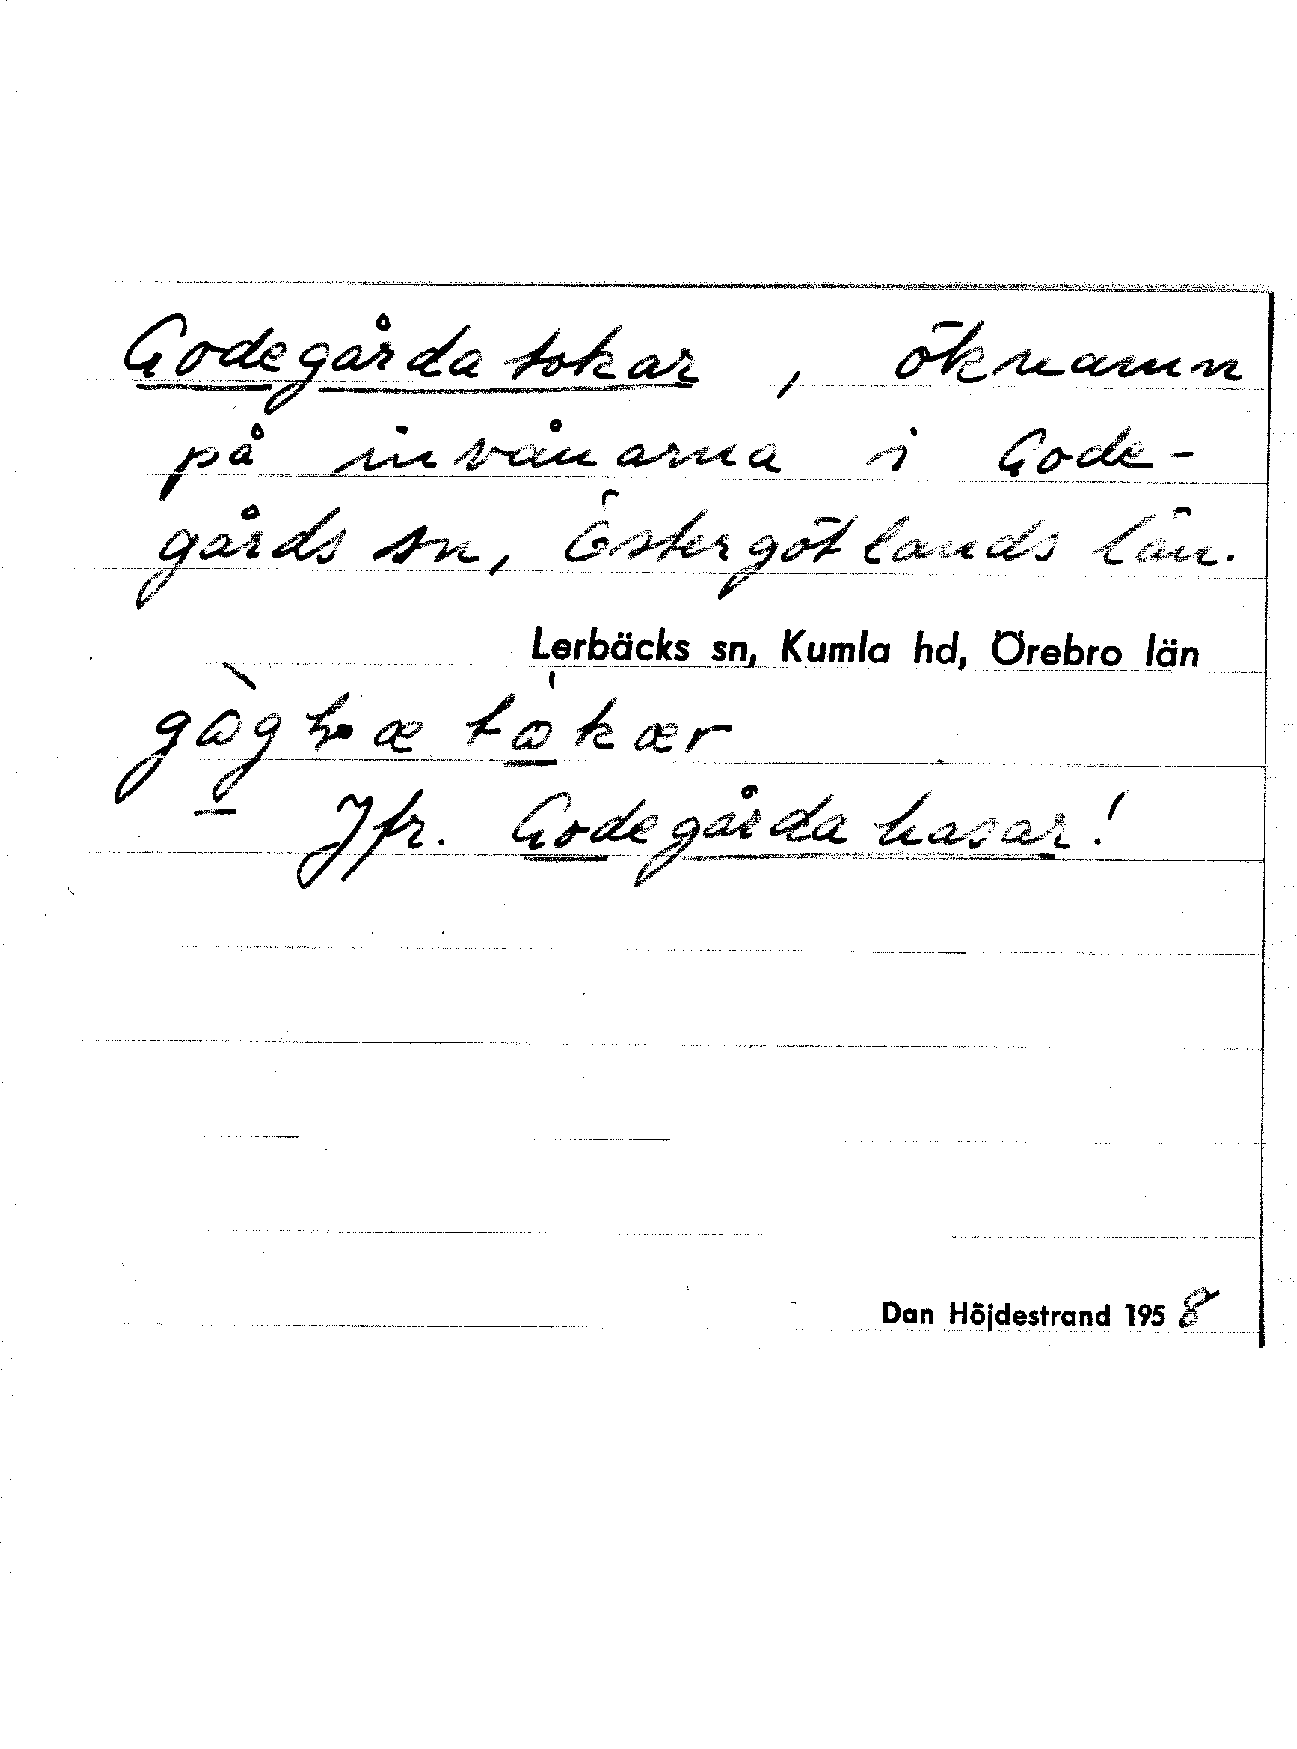 Godegårdatokar, öknamn
på invånarna i Gode-
gårds sn, Östergötlands län.
Lerbäcks sn, Kumla hd, Örebro län
Jfr. Godegårdahasar!
Dan Höjdestrand 1958